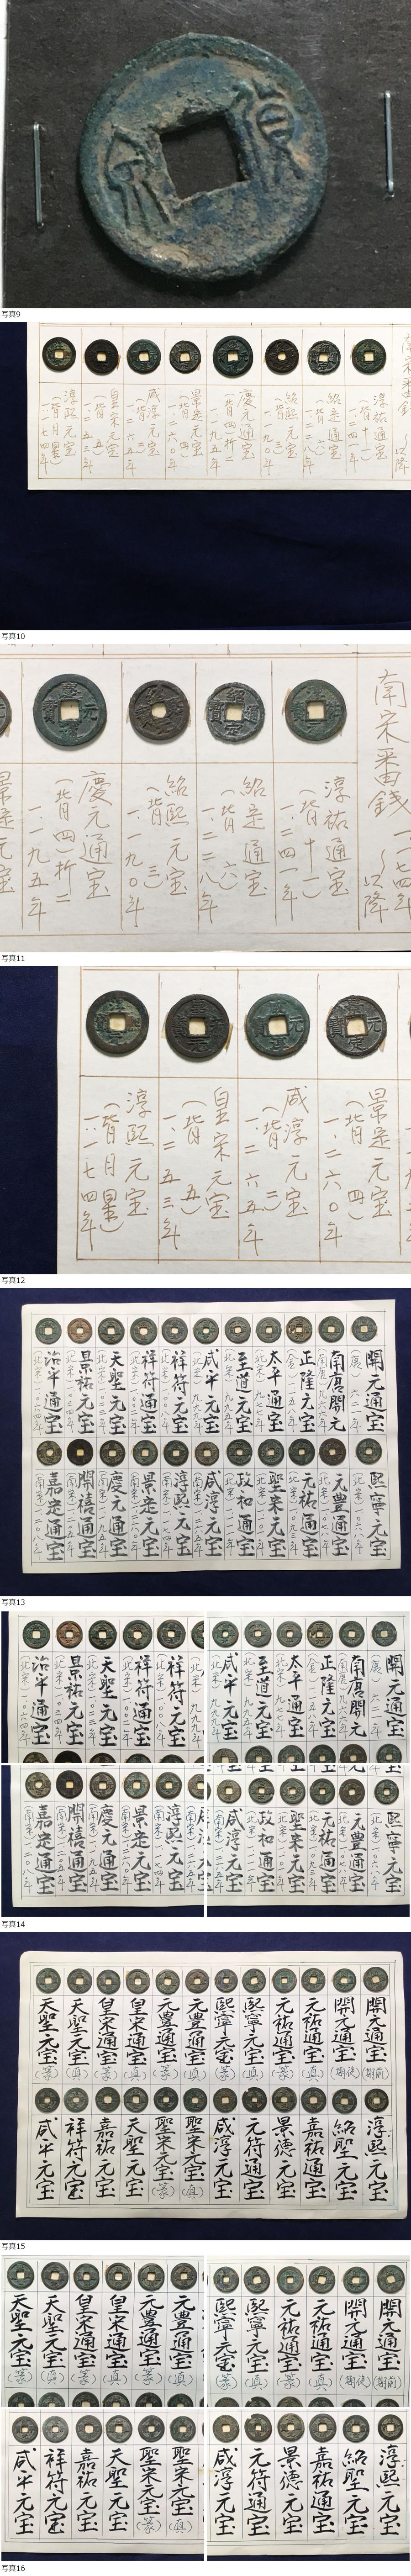 写真9
南宋番銭
〜以降
淳祐通宝
(背十一)
一二四一年
紹定通宝
(背 六)
一二二八年
紹熙元宝
(背 三)
一一九〇年
慶元通宝
(背四)折二
一一九五年
景定元宝
(背 四)
一二六〇年
咸淳元宝
(背 三)
一二六五年
皇宋元宝
(背 五)
一二五三年
淳熙元宝
(背月星)
一一七四年
写真10
南宋番銭
一一七四年
〜以降
淳祐通宝
(背十一)
一、二四一年
紹定通宝
(背 六)
一、二二八年
紹熙元宝
(背 三)
一、一九〇年
慶元通宝
(背四)折二
一、一九五年
景定元宝
写真11
景定元宝
(背 四)
一、二六〇年
咸淳元宝
(背 三)
一、二六五年
皇宋元宝
(背 五)
一、二五三年
淳熙元宝
(背月星)
一、一七四年
写真12
開元通宝
(唐)六二一年
南唐開元
正隆元宝
(金)
太平通宝
(北宋)九七六年
至道元宝
(北宋)九九五年
咸平元宝
(北宋)九九八年
祥符元宝
(北宋)一〇〇八年
祥符通宝
(北宋)
天聖元宝
(北宋)一〇二三年
景祐元宝
(北宋)一〇三四年
治平通宝
(北宋)一〇六四年
熙寧元宝
(北宋)一〇六八年
元豊通宝
(北宋)一〇七八年
元祐通宝
(北宋)
聖宋元宝
(北宋)一一〇一年
政和通宝
(北宋)一一一一年
咸淳元宝
(南宋)一二六五年
淳熙元宝
(南宋)一一七四年
景定元宝
(南宋)一二六〇年
慶元通宝
(南宋)一一九五年
開禧通宝
(南宋)一二〇五年
嘉定通宝
(南宋)一二〇八年
写真13
開元通宝
(唐)六二一年
南唐開元
正隆元宝
太平通宝
至道元宝
(北宋)九九五年
咸平元宝
(北宋)
祥符元宝
(北宋)一〇〇八年
祥符通宝
(北宋)
天聖元宝
(北宋)一〇二三年
景祐元宝
(北宋)一〇三四年
治平通宝
(北宋)一〇六四年
熙寧元宝
(北宋)一〇六八年
元豊通宝
(北宋)一〇七八年
元祐通宝
聖宋元宝
(北宋)一一〇一年
政和通宝
(北宋)一一一一年
咸淳元宝
(南宋)一二六五年
淳熙元宝
(南宋)一一七四年
景定元宝
(南宋)一二六〇年
慶元通宝
(南宋)一一九五年
開禧通宝
(南宋)一二〇五年
嘉定通宝
(南宋)一二〇八年
写真14
開元通宝
(前期)
開元通宝
(後期)
元祐通宝
(真)
元祐通宝
(篆)
熙寧元宝
(真)
熙寧元宝
(篆)
元豊通宝
(真)
元豊通宝
(篆)
皇宋通宝
(真)
皇宋通宝
(篆)
天聖元宝
(真)
天聖元宝
(篆)
淳熙元宝
紹聖元宝
嘉祐通宝
景徳元宝
元符通宝
咸淳元宝
聖宋元宝
(真)
聖宋元宝
(篆)
天聖元宝
嘉祐元宝
祥符元宝
咸平元宝
写真15
開元通宝
(前期)
開元通宝
(後期)
元祐通宝
(真)
元祐通宝
(篆)
熙寧元宝
(真)
熙寧元宝
(篆)
元豊通宝
(真)
元豊通宝
(篆)
皇宋通宝
(真)
皇宋通宝
(篆)
天聖元宝
(真)
天聖元宝
(篆)
淳熙元宝
紹聖元宝
嘉祐通宝
景徳元宝
元符通宝
咸淳元宝
聖宋元宝
(真)
聖宋元宝
(篆)
天聖元宝
嘉祐元宝
祥符元宝
咸平元宝
写真16